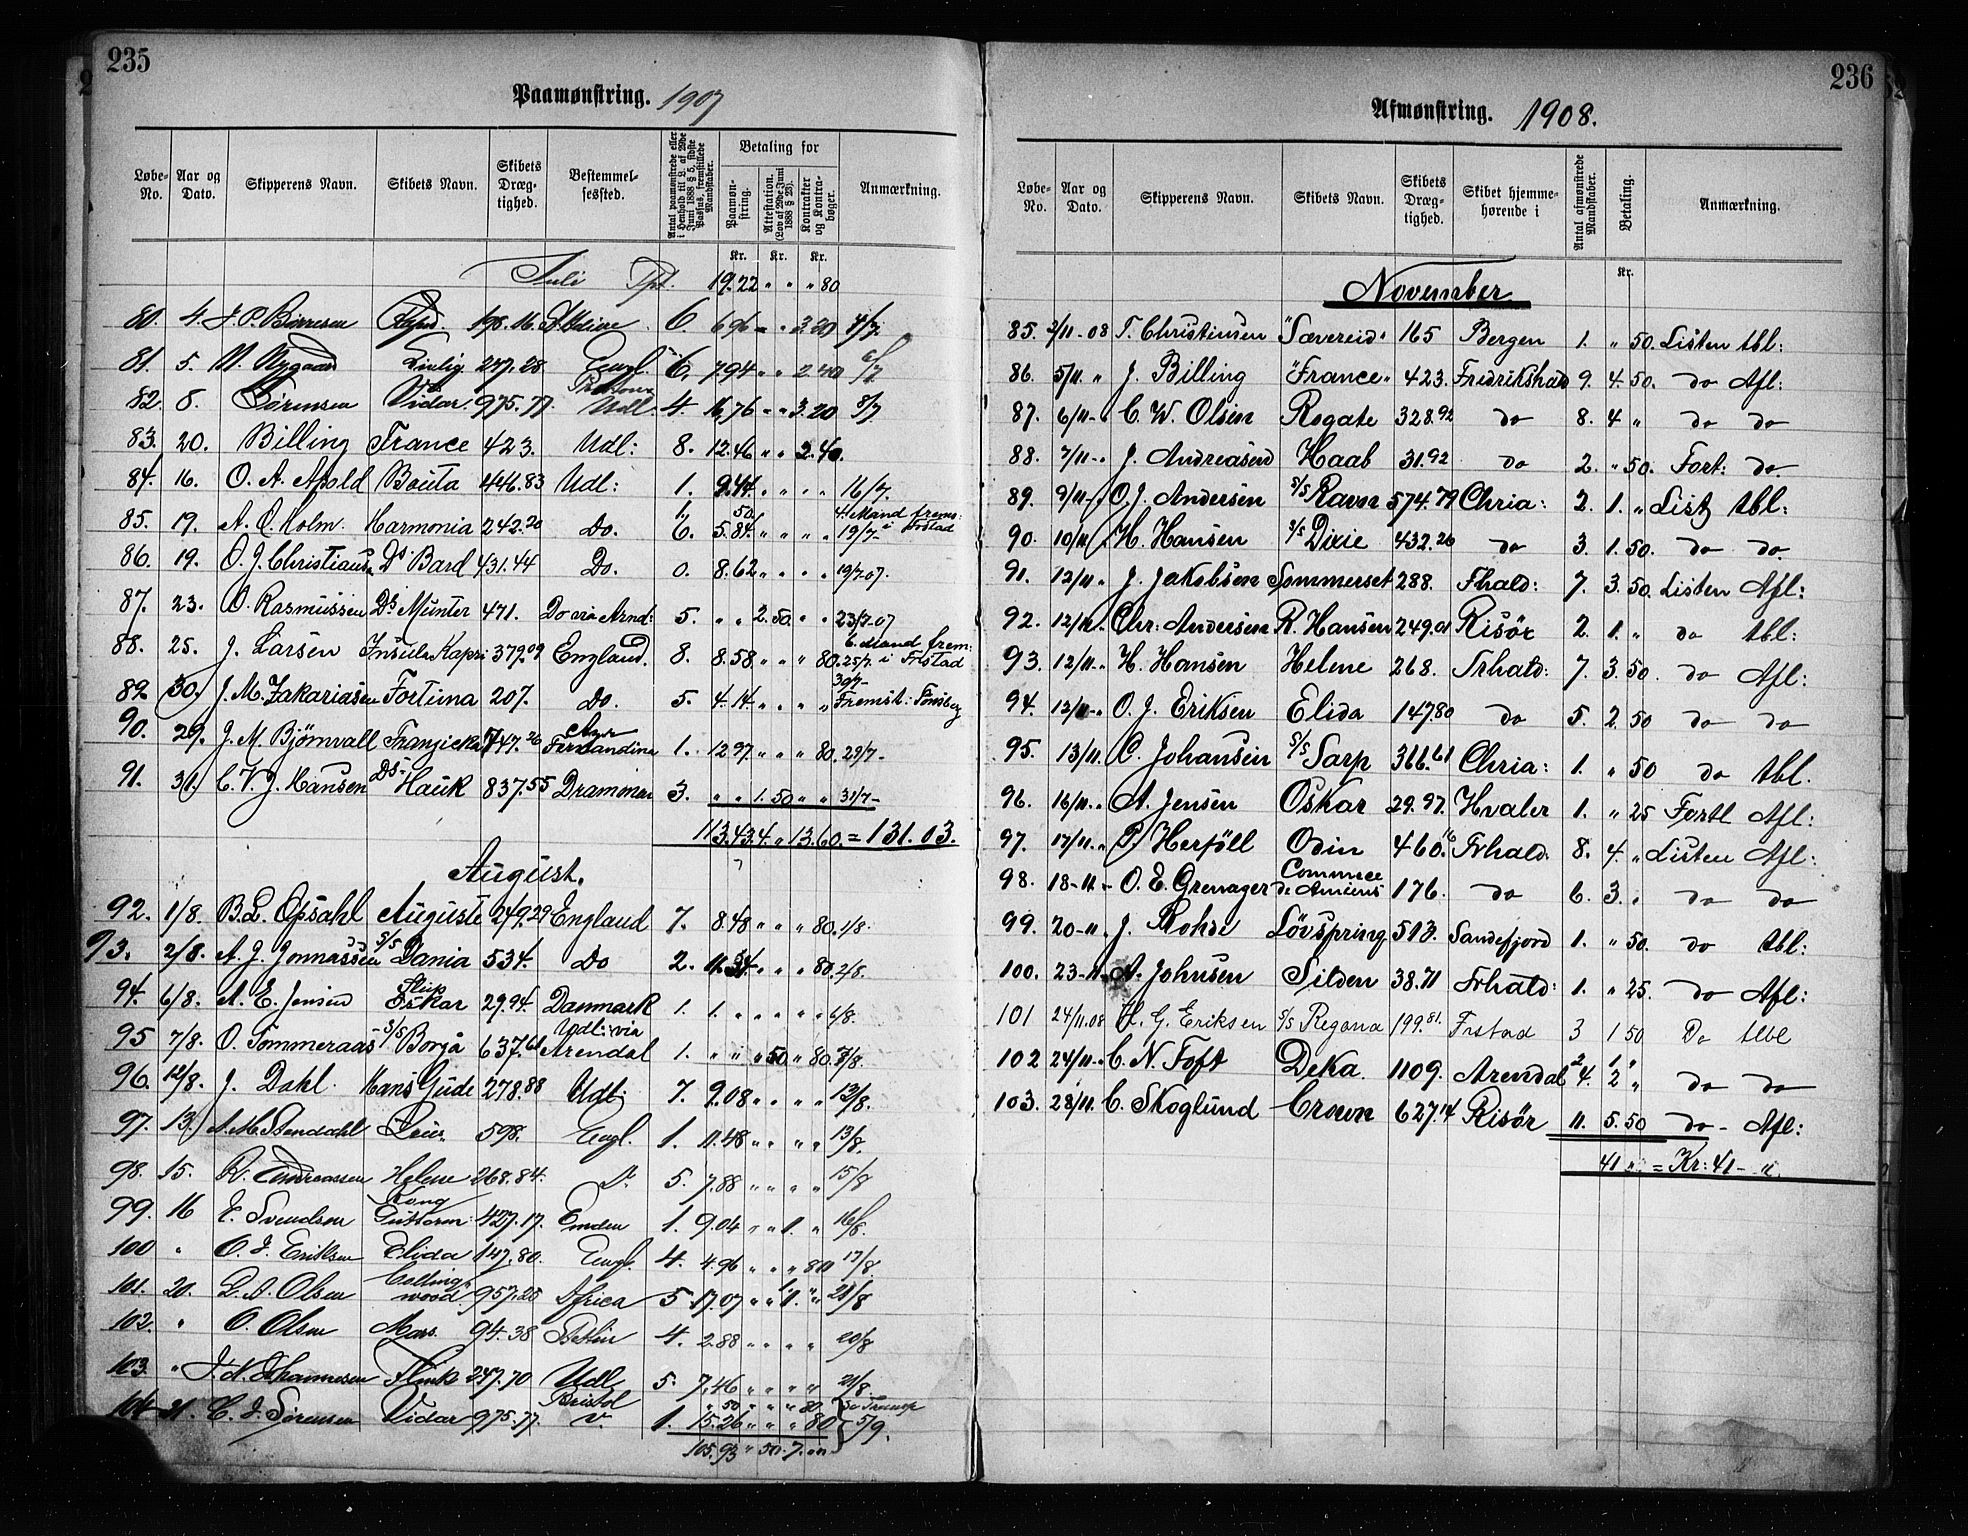 235
Paamønstring. 1907
Løbe-No. Aar og Dato. Skipperens Navn. Skibets Navn. Skibets Dræg-tighed. Bestemmel-sessted. Antal paamønstrede eller i Henhold til L. af 29de Juni 1888 § 5, sidste Passus, fremstillede Mandskaber. Betaling for Paamøn-string. Attestation. (Lov af 29de Juni 1888 § 23). Kontrakter og Kontra-bøger. Anmærkning.
Kr. Kr. Kr.
Juli Tpt. 19.22 " " " 80
80. 4. J. P. Børresen 198.16 6 6 96 " " 3.20 4/7.
81. 5. N. Nygaard 247.28 Engl. 6. 7.94 " " 2.40 6/7
82. 8. Sørensen Vidar 975.77. Udl. 4. 16.76 " " 3.20 8/7
83. 20. Billing France 423. Udl: 8. 12.46 " " 2.40.
84. 16. O. A. Apold Bonita 446.83 Udl: 1. 9.44 " " " " 16/7.
1. 50. 4 Mand frems:
85. 19. A. C. Holm. Harmonia 242.20 Do. 6. 5.84 " " " " 19/7- i Frstad
86. 19. O. J. Christiansen Ds Bard 431.44 Do. 0. 8.62 " " " " 19/7-07.
87. 23. O. Rasmussen Ds Munter 471. Do via Arnd: 5. " " 2.50. " " 23/7-07
6 Mand frem:
88. 25. J. Larsen Insula Kapri 379.09 England. 8. 8.58 " " " 80. 25/7. i Frstad
30/7-
89. 30. J. M. Zakariasen Fortuna 207. Do. 5. 4.14 " " " " Fremst: Tønsberg
90. 29. J. M. Bjørnvall Franzicka 747.26 Fernandina 1. 12.97 " " " 80. 29/7-
91. 31. C. V. J. Hansen Ds- Hauk 837.55 Drammen 3. " " 1.50 " " 31/7-
113.43 4. " 13.60. = 131.03.
August.
92. 1/8. B. L. Opsahl Auguste 249.29 England 7. 8.48 " " " 80. 1/8.
93. 2/8. A. J. Jonnassen S/S Dania 534. Do 2. 11.34 " " " 80. 2/8.
94. 6/8. A. E. Jensen Slup Oskar 29.94. Danmark 1. 1. " " " " " 6/8.
95 7/8. O. Tommeraas S/S Borgå 637.61 Udl: via Arendal 1. " " " 50 " 80. 7/8.
96. 12/8. J. Dahl. Hans Gude 278.88 Udl: 7. 9.08 " " " " 12/8.
97. 13. A. M. Stendahl 598. Engl. 1. 11.48 " " " " 13/8.
98. 15. Andreassen Helene 268.84. 5. 7.88 " " " " 15/8
99. 16 E. Svendsen Kong Guttorm 427.17. Emden 1. 9.04 " " 1. " 16/8.
100 " O. J. Eriksen Elida 147.80. Engl. 4. 4.96 " " " 80 17/8.
101. 20. L. A. Olsen Collingwood 957.25 Africa 5 17.07 " " 1. " 21/8
102. " O. Olsen Mars. 94.38 Stettin 4. 2.88 " " " " 20/8
103. " J. N. Johannesen Flink 247.70 Udl 5. 7.46 " " " " 21/8.
104 21. C. J. Sørensen Vidar 975.77. Bristol 1. 15.26 " " " 80 5/9.
105.93 " 50. 7.

236
Afmønstring. 1908.
Løbe-No. Aar og Dato. Skipperens Navn. Skibets Navn. Skibets Dræg-tighed. Skibet hjemme-hørende i Antal afmønstrede Mandskaber. Betaling. Anmærkning.
Kr.
November
85. 2/11-08 T. Christiensen "Sævereid" 165 Bergen 1. " 50. Listen tbl:
86. 5/11. " J. Billing "France" 423. Fredrikshald 9. 4.50. do Afl:
87. 6/11. " C. W. Olsen Rogate 328.92 do 8. 4 " do do
88. 7/11-. J. Andreasen Haab 31.92 do 2. " 50. Fort: do
89. 9/11- O. J. Andersen S/S Ravn 574.79 Chria: 2. 1. " List tbl:
90. 10/11. H. Hansen S/S Dixie 432.26 do 3. 1.50. do do
91. 12/11. J. Jakobsen Sommerset 288. Fhald: 7. 3.50. Listen Afl:
92. 12/11. Chr: Andersen R. Hansen 249.01 Risör 2. 1. " do tbl:
93. 12/11. H. Hansen Helene 268. Frhald: 7. 3.50. do Afl:
94. 12/11-. O. J. Eriksen Elida 147.80 do 5. 2.50 do do
95. 13/11. C. Johansen S/S Sarp 366.61 Chria: 1. " 50 do tbl.
96. 16/11. A. Jensen Oskar 29.97. Hvaler 1. " 25 Fortl Afl:
97. 17/11. P. Herföll Odin 460.16 Frhald. 8. 4. " Listen Afl:
98. 18-11- O. E. Grenager Commece de Amiens 176. do 6. 3. " do do
99. 20-11. J. Rohde Lövspring 513. Sandefjord 1. " 50. do tbl:
100. 23-11. A. Johnsen Silden 38.71 Frhald: 1. " 25. do Afl:
101 24/11.08 H. G. Eriksen S/s Regona 199.81. Frstad 3 1 50 Do tlbl
102 24/11-. C. N. Toft Deka. 1109. Arendal 4. 2 " do do
103. 28/11. C. Skoglund Crown 627.14 Risör 11. 5.50 do- Afl:
41 ". = Kr: 41- "